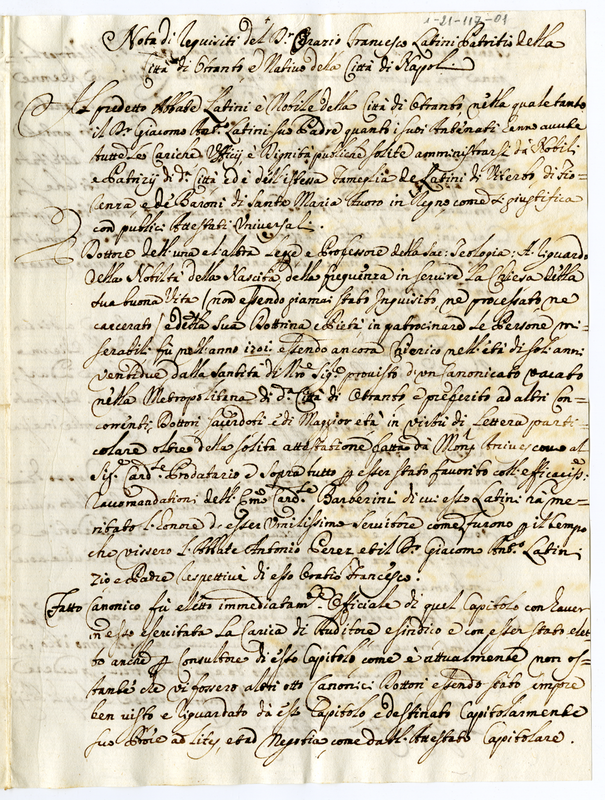 1-21-117-01
Nota di Requisiti del Sr. D. Orazio Francesco Latini Patritio della
Città di Otranto e Nativo della Città di Napoli.
Il predetto Abbate Latini è Nobile della Città di Otranto nella quale tanto
il Dr. Giacomo Ant.o Latini suo Padre quanto i suoi Antenati enno avute
tutte le Cariche Ufficij e Dignità publiche solite amministrarsi da Nobili
e Patrizij di d.a Città ed è dell'istessa fameglia de Latini di Viterbo di Fio=
renza e de Baroni di Santa Maria Auoro in Regno come si giustifica
con publici Attestati Universali.
Dottore dell'una e l'altra Legge e Professore della Sac: Teologia: A riguardo
della Nobiltà della Nascita della frequenza in servire la Chiesa della
sua buona Vita (non essendo giamai stato Inquisito ne processato ne
carcerato) e della sua Dottrina e Pietà in patrocinare le Persone mi=
serabili fù nell'anno 1701. essendo ancora Chierico nell'età di soli anni
ventidue dalla Santità di Nro Sigre provisto d'un Canonicato vacato
nella Metropolitana di d.a Città di Otranto e preferito ad altri Con=
correnti Dottori Sacerdoti e di Maggior età in virtù di Lettera parti=
colare oltre della solita attestatione fatta da Mons. Arcivescovo al
Sig. Card.le Prodatario e sopra tutto p esser stato favorito coll'efficaciss:
Raccomandationi dell'Emo Card.le Barberini di cui esso Latini ha me=
ritato l'onore d'esser Umilissimo servitore come furono p il tempo
che vissero l'Abbate Antonio Perez et il Dr. Giacomo Ant.o Latini
Zio e Padre respettivè di esso Oratio Francesco.
Fatto Canonico fù eletto immediatam.te Officiale di quel Capitolo con haver
in esso esercitata la Carica di Auditore e sindico e con esser stato elet=
to anche p Consultore di esso Capitolo come è attualmente non os=
tante che vi fossero altri otto Canonici Dottori essendo stato sempre
ben visto e riguardato da esso Capitolo e destinato Capitolarmente
suo Prore ad lites, et ad Negotia, come dall'Attestato Capitolare.